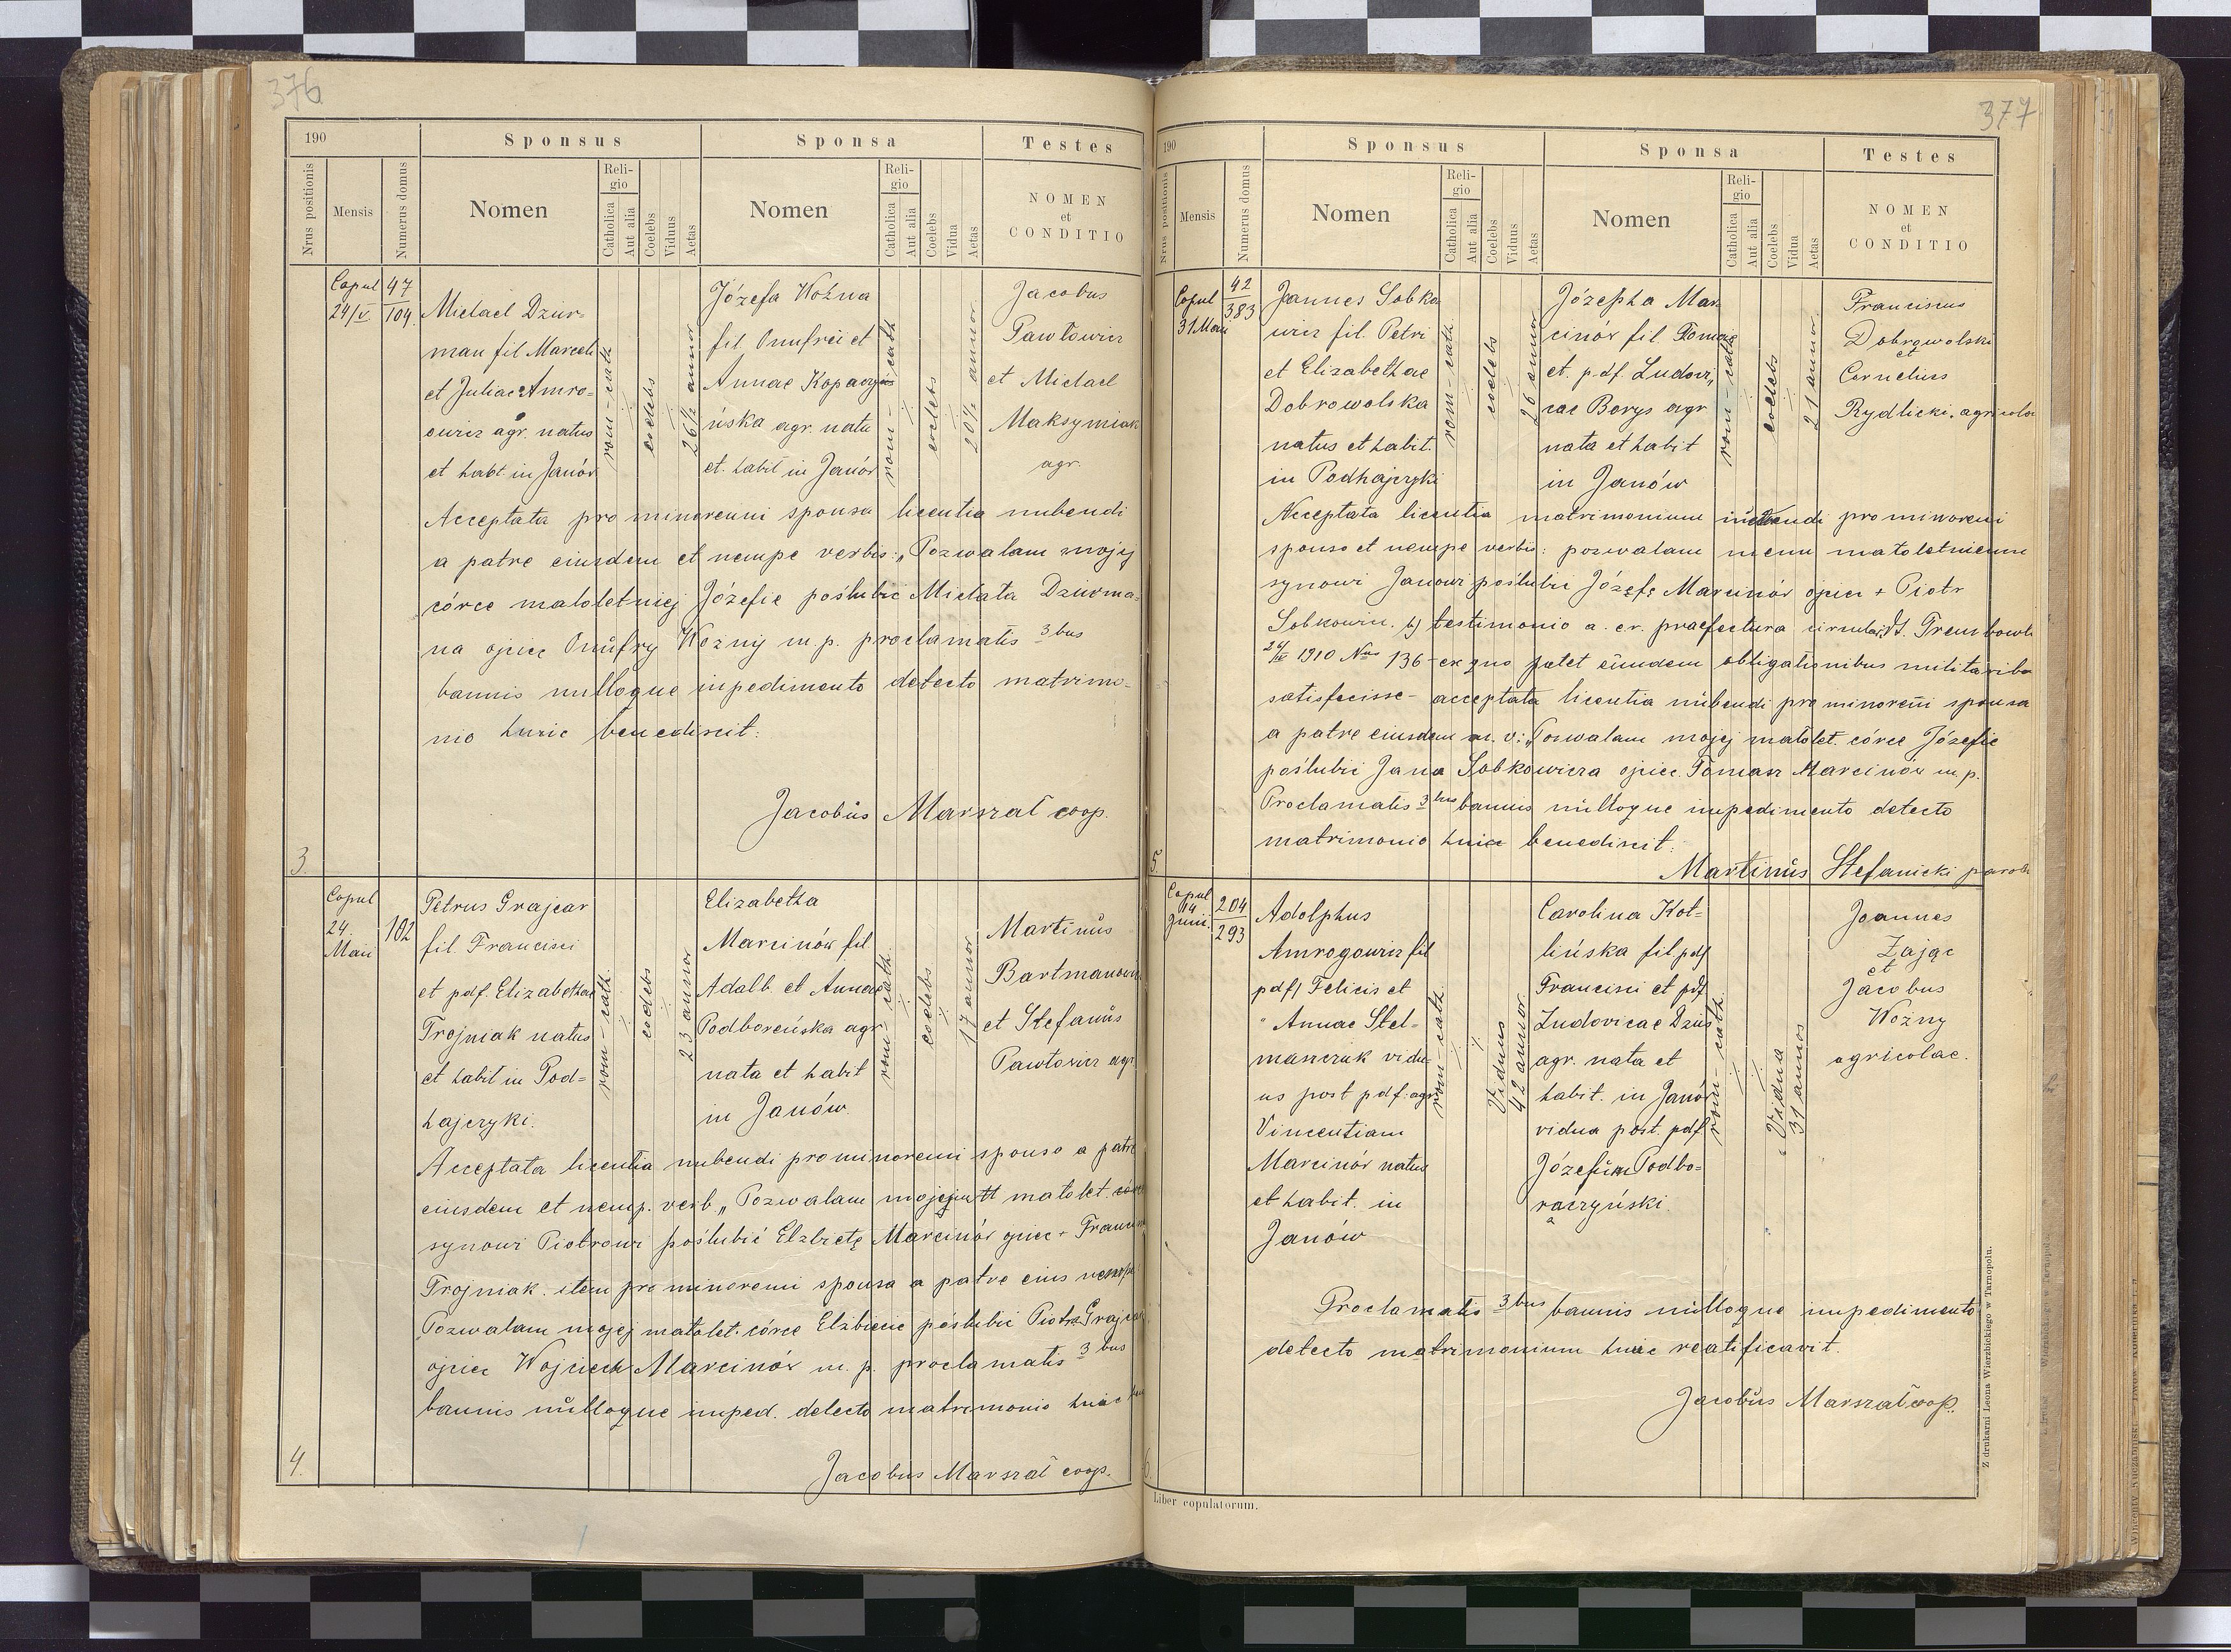 376
190
Sponsus
Sponsa
Testes
Nrus positionis
Mensis
Numerus domus
Nomen
Religio
Catholica
Aut alia
Coelebs
Viduus
Aetas
Nomen
Religio
Catholica
Aut alia
Coelebs
Vidua
Aetas
NOMEN
et
CONDITIO
3.
Copul
24/V.
47
104.
Michael Dziur-
man fil Marceli
et Juliae Amro-
owicz agr. natus
et habt in Janów
rom-cath
coelebs
26½ annor
Józefa Woźna
fil Onufrei et
Annae Kopaczy
ńska agr. nata
et. habit in Janów
rom-cath
coelebs
20½ annor
Jacobus
Pawłowicz
et Michael
Maksymiak
agr.
Acceptata pro minorenni sponsa licentia nubendi
a patre eiusdem et nempe verbis: „Pozwalam mojej
córce małoletniej Józefie poślubić Michała Dziurma-
na ojciec Onufry Woźny m. p. proclamatis 3bus
bannis nulloque inpedimento detecto matrimo-
nio hunic benedixit:
Jacobus Marszał coop.
4.
Copul
24.
Maii
102
Petrus Grajcar
fil. Francisci
et pdf. Elizabethae
Trojniak natus
et habit in Pod=
hajczyki.
rom-cath.
coelebs
23 annor
Elizabetha
Marcinów fil.
Adalb. et Annae
Podboreńska agr
nata et habit
in Janów
rom-cath.
coelebs
17 annor
Martinus
Bartmanowicz
et Stefanus
Pawłowicz agr
Acceptata licentia nubendi pro minorenni sponso a patre
eiusdem et nemp. verb. „Pozwalam małolet.
synowi Piotrowi poślubić Elzbietę Marcinów ojciec +
Trojniak. item pro minorenni sponsa a patre eius nempe
Pozwalam mojej małolet. córce Elżbiecie poślubić Piotra Grajcar
ojciec Wojciech Marcinów m. p. proclamatis 3bus
bannis nulloque imped. detecto matrimonio huic
Jacobus Marszał coop.
377
190
Sponsus
Sponsa
Testes
Nrus positionis
Mensis
Numerus domus
Nomen
Religio
Catholica
Aut alia
Coelebs
Viduus
Aetas
Nomen
Religio
Catholica
Aut alia
Coelebs
Vidua
Aetas
NOMEN
et
CONDITIO
5.
Copul
31 Maii
42
383
Joannes Sobko
wicz fil. Petri
et Elizabethae
Dobrowolska
natus et habit.
in Podhajczyki
rom-cath.
coelebs
26 annor
Józepha Mar
cinów fil Tomae
et. pdf. Ludovi„
cae Borys agr
nata et habit
in Janów
rom-cath
coelebs
21 annor.
Franciscus
Dobrowolski
et
Cornelius
Rydlicki, agricola
Acceptata licentia matrimonium pro minoreni
sponso et nempe verbis: pozwalam memu małoletniemu
synowi Janowi poślubić Józefę Marcinów ojciec + Piotr
Sobkowicz. b) testimonio a. c. r. praefectura circulari Trembowla
24/IV 1910 Nus 136 - ex quo patet eumdem obligationibus militaribu
satisfecisse - acceptata licentia nubendi pro minoreni sponsa
a patre eiusdem m. v: „Pozwalam mojej małolet. córce Józefie
poślubić Jana Sobkowicza ojciec. Tomasz Marcinów m. p.
Proclamatis 3bus bannis nulloque impedimento detecto
matrimonio huic benedixit:
Martinus Stefanicki paroch
6.
Copul
14
Junii.
204
293
Adolphus
Amrogowicz fil
pdf Felicis et
" Annae Stel-
maszczuk vidu-
us post pdf. agr
Vincentiam
Marcinów natus
et habit. in
Janów
rom-cath.
Viduus
42 annor
Carolina Kot-
lińska fil pdf
Francisci et pdf
Ludovicae Dzius
agr. nata et
habit. in Janów
vidua post. pdf
Józefum Podbo-
raczyński.
rom-cath.
Vidua
31 annos
Joannes
Zając
et
Jacobus
Woźny
agricolae.
Proclamatis 3bus bannis nulloque impedimento
detecto matrimonium huic reatificavit.
Jacobus Marszał coop.
Liber copulatorum.
Z drukarni Leona Wierzbickiego w Tarnopolu.